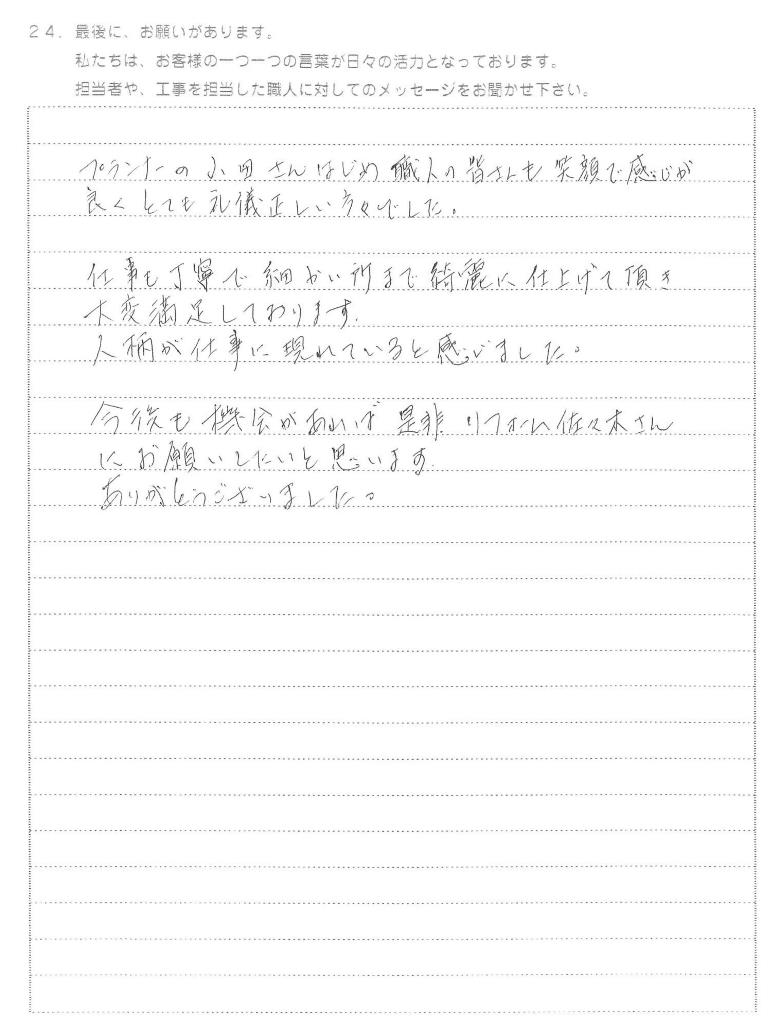 24. 最後に、お願いがあります。
私たちは、お客様の一つ一つの言葉が日々の活力となっております。
担当者や、工事を担当した職人に対してのメッセージをお聞かせ下さい。
プランナーの小田さんはじめ 職人の皆さんも 笑顔で感じが
良く とても 礼儀正しい方々でした。
仕事も丁寧で 細かい所まで綺麗に 仕上げて頂き
大変満足しております.
人柄が仕事に 現れていると感じました。
今後も 機会があれば 是非 リフォーム佐々木さん
に お願いしたいと 思います
ありがとうございました。